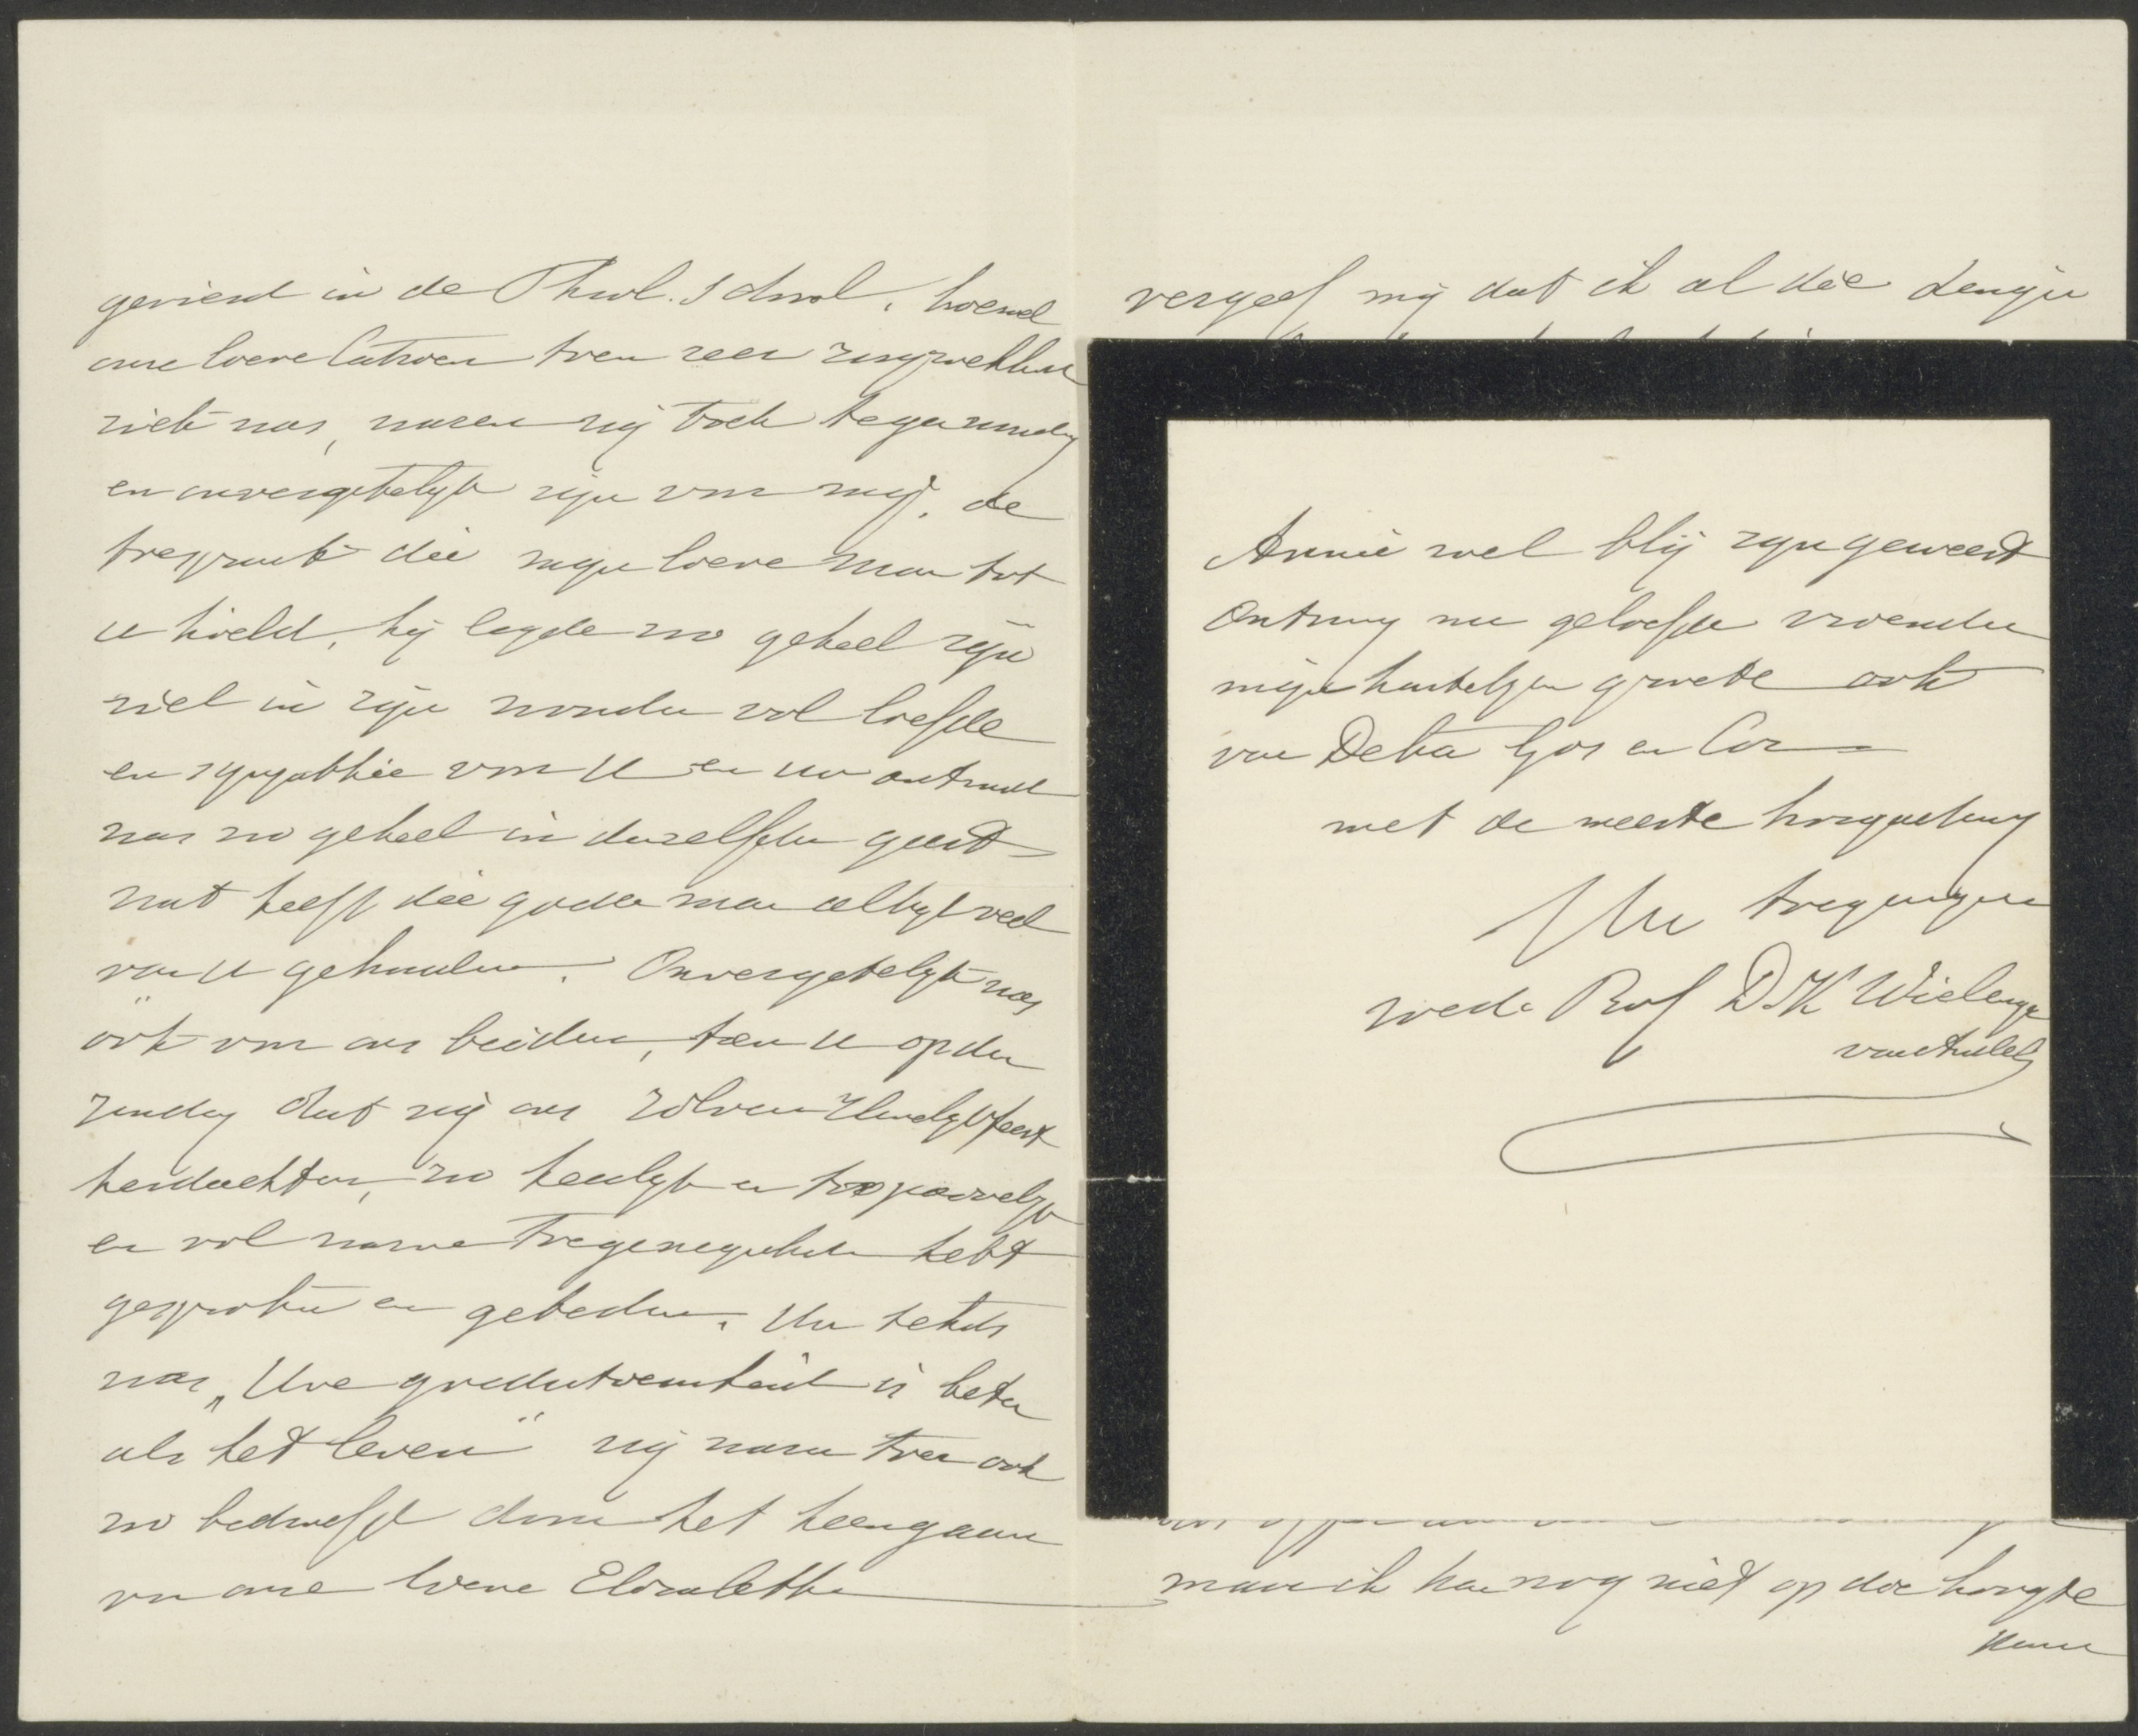 gevierd in de Theol. School, hoewel
onze lieve Catrien toen zeer zorgwekkend
ziek was, waren zij toch tegenwoordig
en onvergetelijk zijn voor mij, de
toespraak die mijn lieve man tot
u hield, hij legde zoo geheel zijn
ziel in zijn woorden vol liefde
en sympathie voor U en uw antwoord
was zoo geheel in denzelfden geest
wat heeft die goede man altijd veel
van U gehouden. Onvergetelijk was
ook voor ons beiden, toen U op den
Zondag dat wij ons zilveren Huwelijksfeest
herdachten, zoo heerlijk en toepasselijk
en vol warme toegenegenheid hebt
gesproken en gebeden. Uw tekst
was „Uwe goedertierenheid is beter
als het leven" wij waren toen ook
zoo bedroefd door het heengaan
van onze lieve Elisabeth
vergeef mij dat ik al die dingen
maar ik kan nog niet op die hoogte
komen
Annie wel blij zijn geweest
Ontvang nu geliefde vrienden
mijn hartelijke groete ook
van Deba Gos en Cor
met de meeste hoogachting
Uw toegenegen
wede Prof D K Wielenga
van Andel